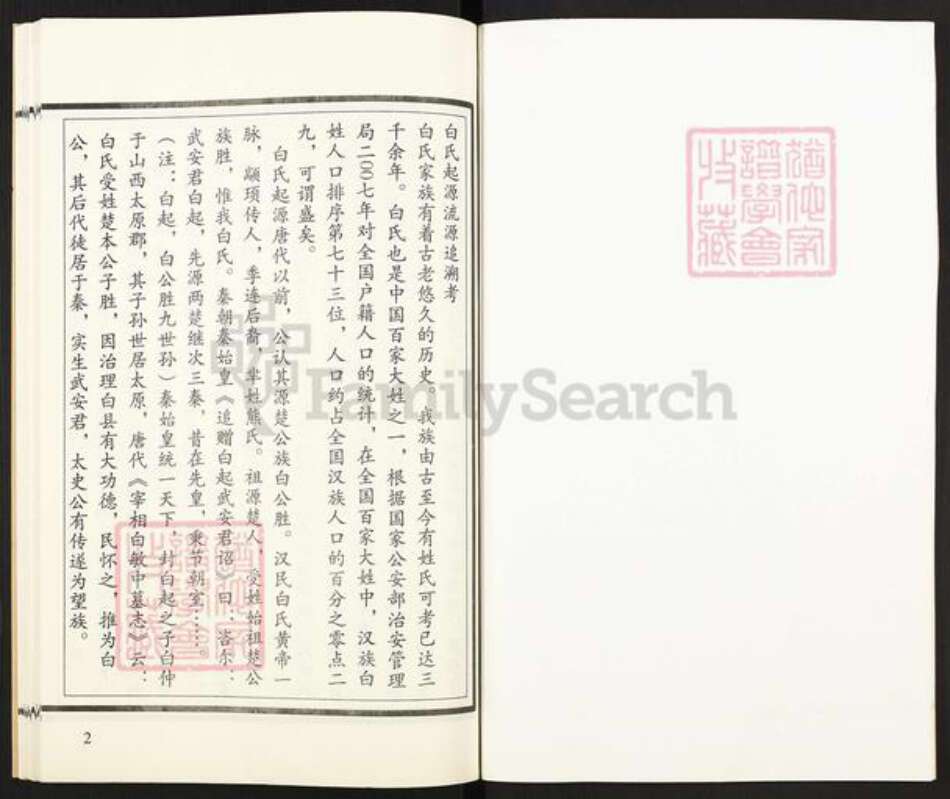 白氏起源流源追溯考
白氏家族有着古老悠久的历史。我族由古至今有姓氏可考已达三
千余年。白氏也是中国百家大姓之一，根据国家公安部治安管理
局二〇〇七年对全国户籍人口的统计，在全国百家大姓中，汉族白
姓人口排序第七十三位，人口约占全国汉族人口的百分之零点二
九，可谓盛矣。
白氏起源唐代以前，公认其源楚公族白公胜。汉民白氏黄帝一
脉，颛顼传人，季连后裔，芈姓熊氏。祖源楚人，受姓始祖楚公
族胜，惟我白氏。秦朝秦始皇《追赠白起武安君诏》曰：咨尔：
武安君白起，先源两楚继次三秦，昔在先皇，秉节朝室……。
（注：白起，白公胜九世孙）秦始皇统一天下，封白起之子白仲
于山西太原郡，其子孙世居太原，唐代《宰相白敏中墓志》云：
白氏受姓楚本公子胜，因治理白县有大功德，民怀之，推为白
公，其后代徒居于秦，实生武安君，太史公有传遂为望族。
2
FamilySearch
譜學會
收藏